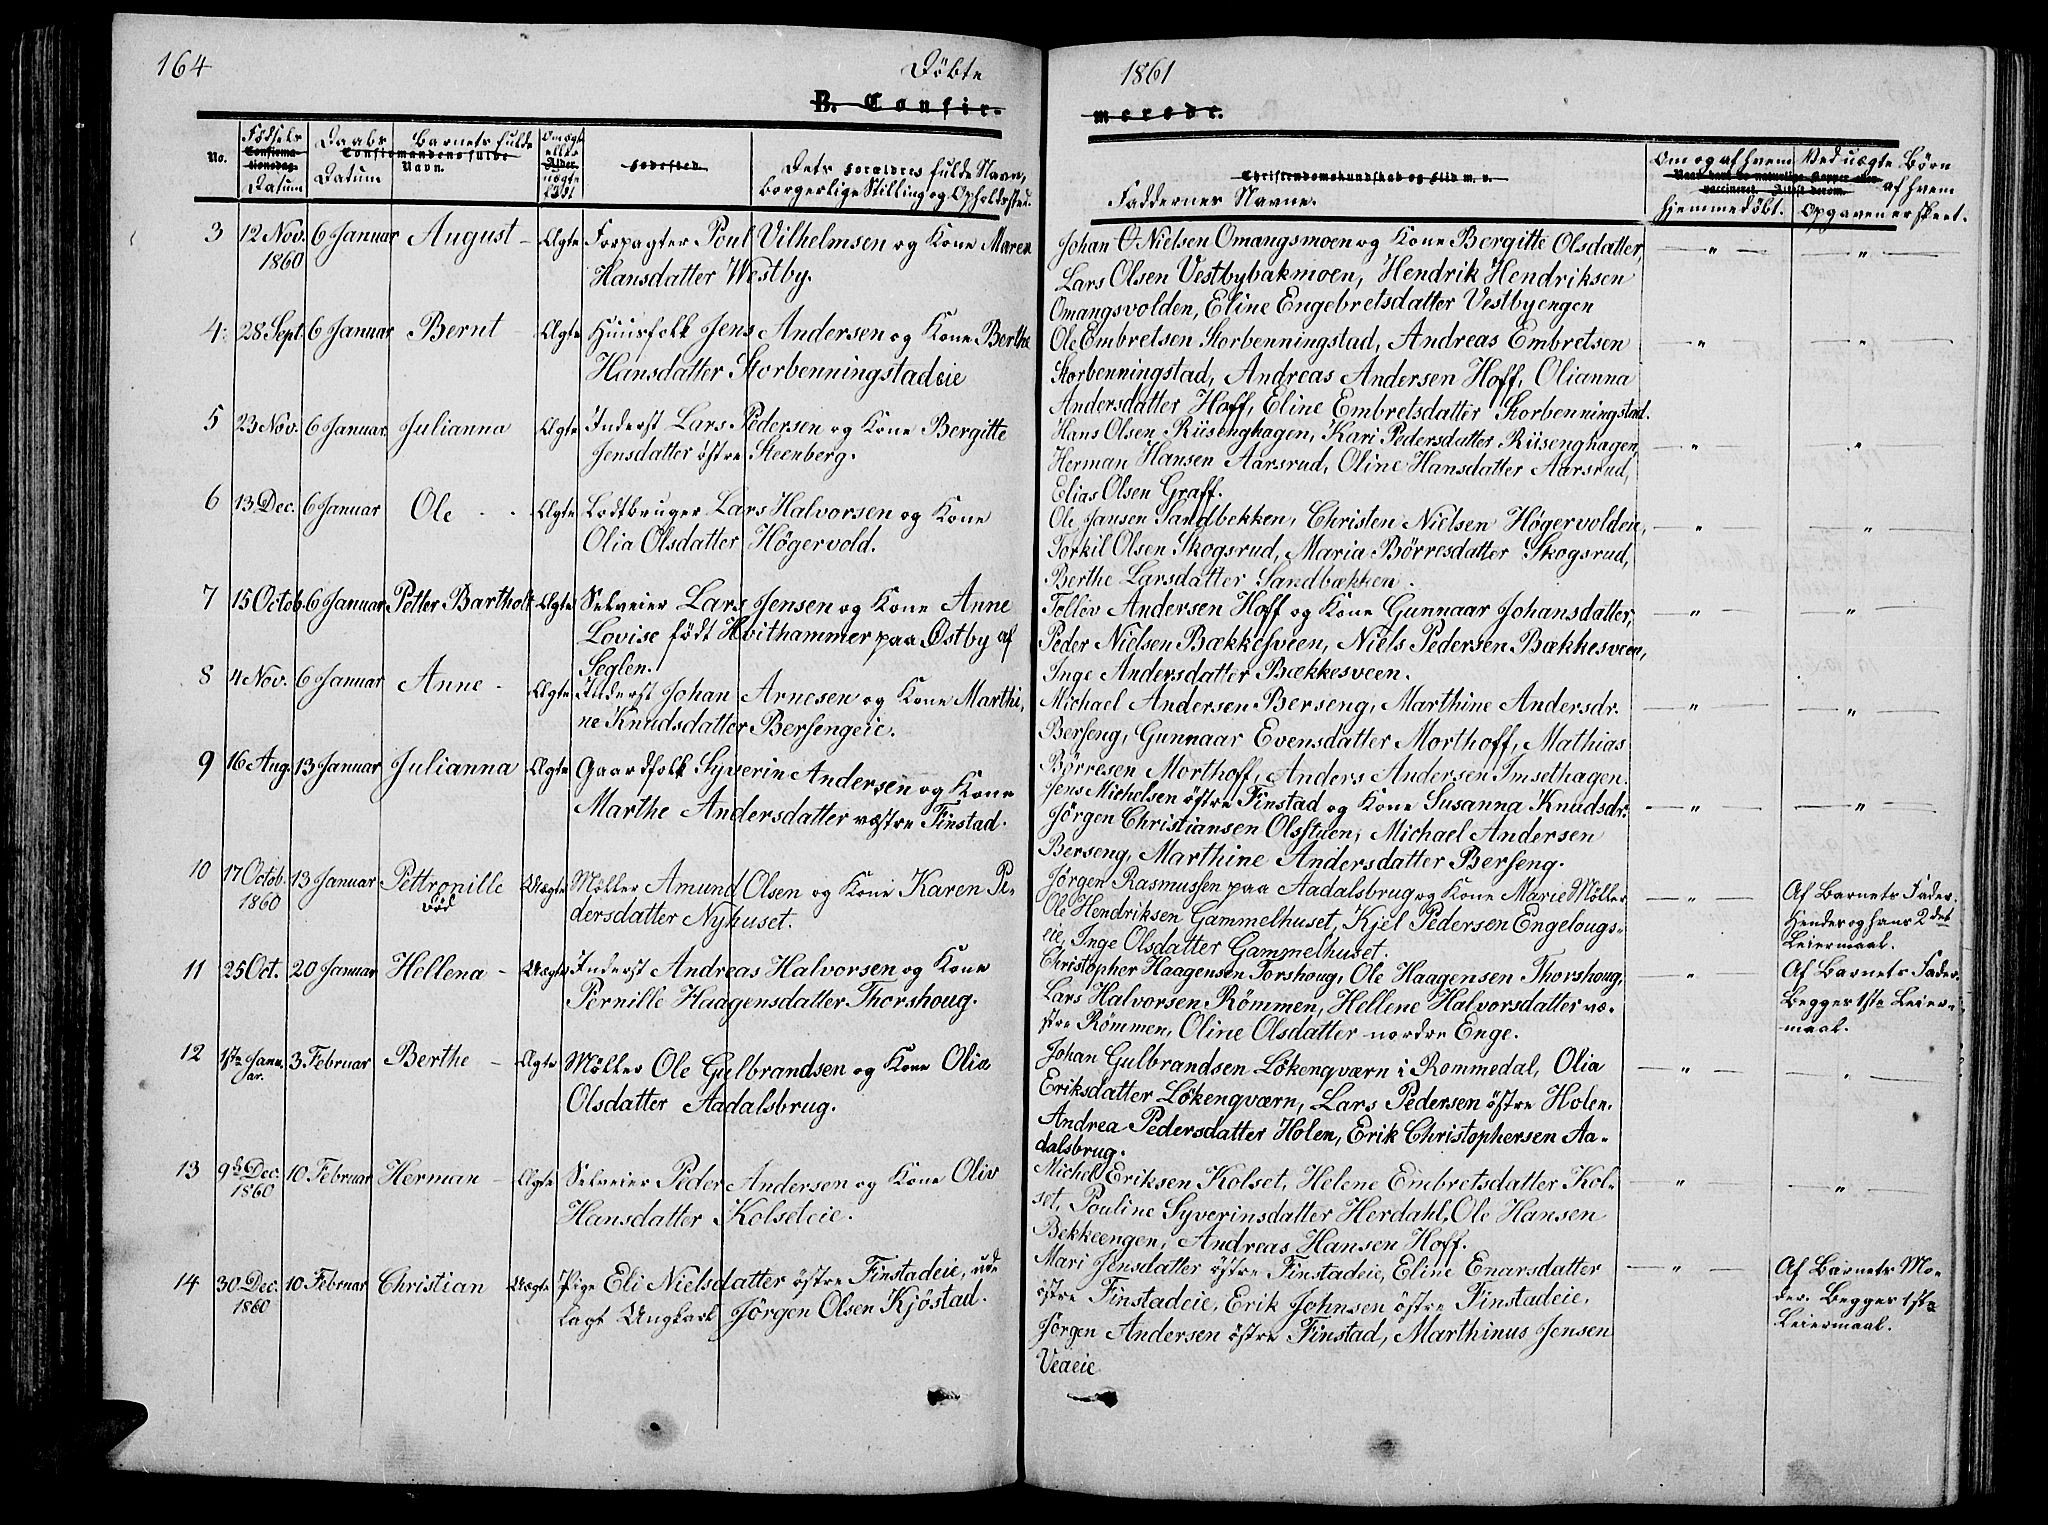 164
Döbte
1861
B. Confir-
merede.
No.
Födsels
Confirma-
tionsdag
Datum
Daabs
Datum
Barnets fulde
Confirmandens fulde
Navn.
Om ægte
eller
Alder.
uægte
født
Födested.
Dets Forældres fulde Navn,
borgerlige Stilling og Opholdssted.
Christendomskundskab og Flid m. v.
Faddernes Navne.
Om og af hvem
hjemmedøbt.
Ved uægte Børn
af hvem
Opgaven er skeet.
3 12 Nov. 6 Januar August - Ægte Forpagter Poul Vilhelmsen og Kone Maren
1860 Hansdatter Westby.
Johan O Nielsen Omangsmoen og Kone Bergitte Olsdatter, — " — — " —
Lars Olsen Vestbybakmoen, Hendrik Hendriksen
Omangsvolden, Eline Engebretsdatter Vestbyengen
4. 28 Sept. 6 Januar Bernt - Ægte Huusfolk Jens Andersen og Kone Berthe
Hansdatter Storbenningstadeie
Ole Embretsen Storbenningstad, Andreas Embretsen — " — — " —
Storbenningstad, Andreas Andersen Hoff, Olianna
Andersdatter Hoff, Eline Embretsdatter Storbenningstad.
5 23 Nov. 6 Januar Julianna Ægte Inderst Lars Pedersen og Kone Bergitte
Jensdatter østre Steenberg.
Hans Olsen Riisenghagen, Kari Pedersdatter Riisenghagen, — " — — " —
Herman Hansen Aarsrud, Oline Hansdatter Aarsrud,
Elias Olsen Graff.
6 13 Dec. 6 Januar Ole - - Ægte Lodtbruger Lars Halvorsen og Kone
Olia Olsdatter Högervold.
Ole Jansen Sandbekken, Christen Nielsen Högervolden, — " — — " —
Torkil Olsen Skogsrud, Maria Börresdatter Skogsrud,
Berthe Larsdatter Sandbækken.
7 15 Octob. 6 Januar Petter Bartholt Ægte Selveier Lars Jensen og Kone Anne
Lovise født Hvithammer paa Östby af
Seglen.
Tollöv Andersen Hoff og Kone Gunnaar Johansdatter, — " — — " —
Peder Nielsen Bækkesveen, Niels Pedersen Bækkesveen,
Inge Andersdatter Bækkesveen.
8 4 Nov. 6 Januar Anne - Ægte Inderst Johan Arnesen og Kone Marthi,
ne Knudsdatter Bersengeie.
Michael Andersen Berseng, Marthine Andersdr. — " — — " —
Berseng, Gunnaar Evensdatter Morthoff, Mathias
Börresen Morthoff, Anders Andersen Imsethagen.
9 16 Aug. 13 Januar Julianna Ægte Gaardfolk Syverin Andersen og Kone
Marthe Andersdatter vestre Finstad.
Jens Michelsen östre Finstad og Kone Susanna Knudsdr. — " — — " —
Jörgen Christiansen Olsstuen, Michael Andersen
Berseng, Marthine Andersdatter Berseng.
10 17 Octob. 13 Januar Pettronille Uægte Möller Amund Olsen og Kone Karen Pe-
1860 død dersdatter Nyhuset.
Jörgen Rasmussen paa Aadalsbrug og Kone Marie Möller — " — Af Barnets Fader.
Ole Hendriksen Gammelhuset, Kjel Pedersen Engelougs- Hendes og hans 2det
eie, Inge Olsdatter Gammelhuset. Leiermaal.
11 25 Oct. 20 Januar Hellena - Uægte Inderst Andreas Halvorsen og Kone
Pernille Haagensdatter Thorshoug.
Christopher Haagensen Torshoug, Ole Haagensen Thorshoug, " Af Barnets Fader.
Lars Halvorsen Römmen, Hellene Halvorsdatter ve- Begges 1ste Leier-
stre Römmen, Oline Olsdatter nordre Enge. maal.
12 1ste Janu- 3 Februar Berthe - Ægte Möller Ole Gulbrandsen og Kone Olia
ar. Olsdatter Aadalsbrug.
Johan Gulbrandsen Lökenqværn i Rommedal, Olia — " — — " —
Eriksdatter Lökenqværn, Lars Pedersen östre Holen.
Andrea Pedersdatter Holen, Erik Christophersen Aa-
dalsbrug.
13 9de Dec. 10 Februar Herman - Ægte Selveier Peder Andersen og Kone Oliv
1860 Hansdatter Kolseteie.
Michel Eriksen Kolset, Helene Embretsdatter Kol- — " — — " —
set, Pouline Syverinsdatter Herdahl, Ole Hansen
Bekkeengen, Andreas Hansen Hoff.
14 30 Dec. 10 Februar Christian Uægte Pige Eli Nielsdatter östre Finstadeie, ud-
1860 lagt Ungkarl Jörgen Olsen Kjöstad.
Mari Jensdatter östre Finstadeie, Eline Enarsdatter — " — Af Barnets Mo-
östre Finstadeie, Erik Johnsen östre Finstadeie, der. Begges 1ste
Jörgen Andersen östre Finstad, Marthinus Jensen Leiermaal.
Veaeie